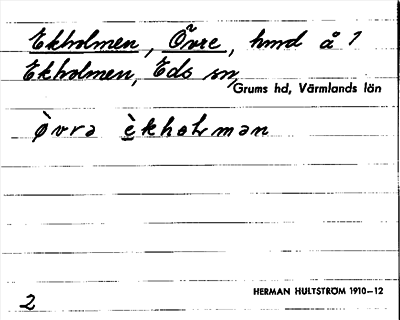 Ekholmen, Övre, hmd å 1
Ekholmen, Eds sn,
Grums hd, Värmlands län
ø̀vrə èkholmən
HERMAN HULTSTRÖM 1910–12
2